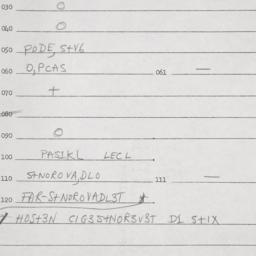 030 O
040 O
050 PODE, S+V6
060 O,PCAS 061 —
070 +
080
090 O
100 PASIKL LECL
110 S+NOROVA,DLO 111 —
120 FAR-S+NOROVADL3T
HOS+3N C1G3S+NOR3V3T D1 S+1X